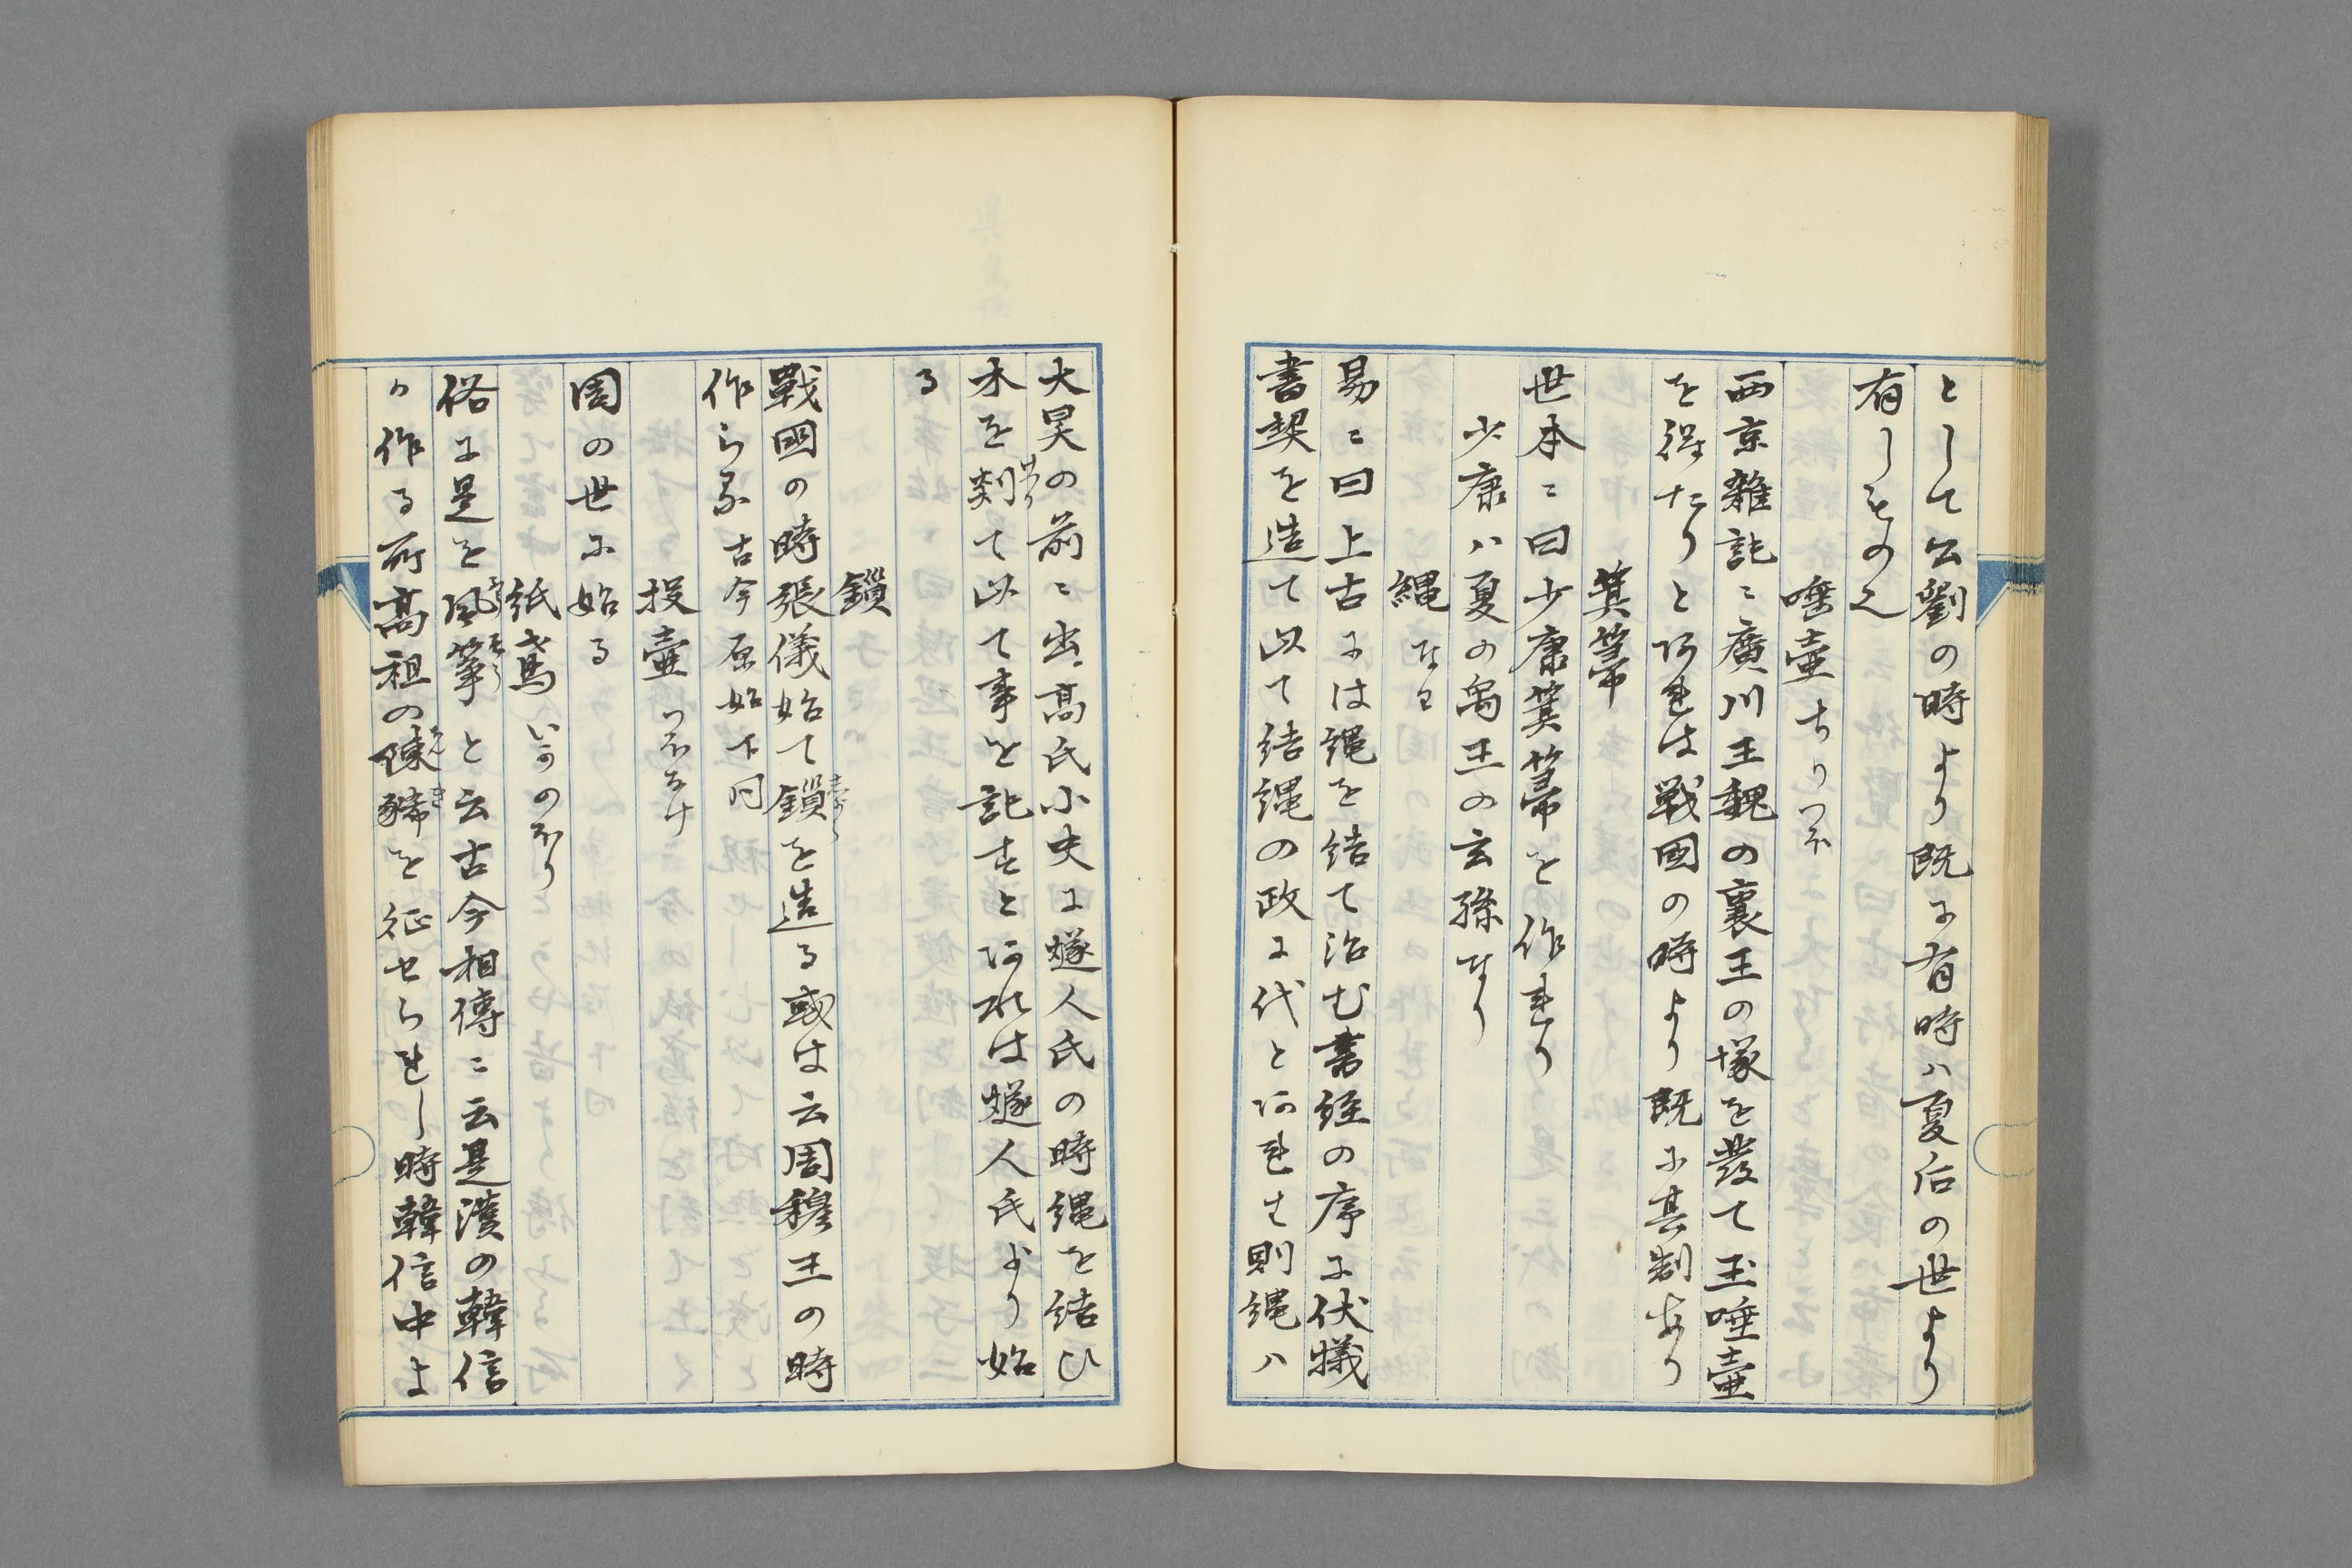 として公劉の時より既に有時ハ夏后の世より
有しものん
唾壷 ちりつぼ
西京雑記ニ廣川王魏の襄王の塚を發て玉唾壷
を得たりと阿れは戦国の時より既に其制あり
箕箒
世本ニ曰少康箕箒を作れり
少康ハ夏の禹王の玄孫なり
縄 なわ
易ニ曰上古には縄を結て治む書経の序に伏犠
書契を造て以て結縄の政に代と阿れは則縄ハ
大昊の前ニ出高氏小史に燧人氏の時縄を結ひ
木を刻て以て事を記すと阿れは燧人氏より始
る
鎖
戦国の時張儀始て鎖を造る或は云周穆王の時
作らる 古今原始下同
投壷 つぼなけ
周の世に始る
紙鳶 いかのぼり
俗に是を風箏と云古今相傳ニ云是漢の韓信
か作る所高祖の陳豨を征せられし時韓信中よ